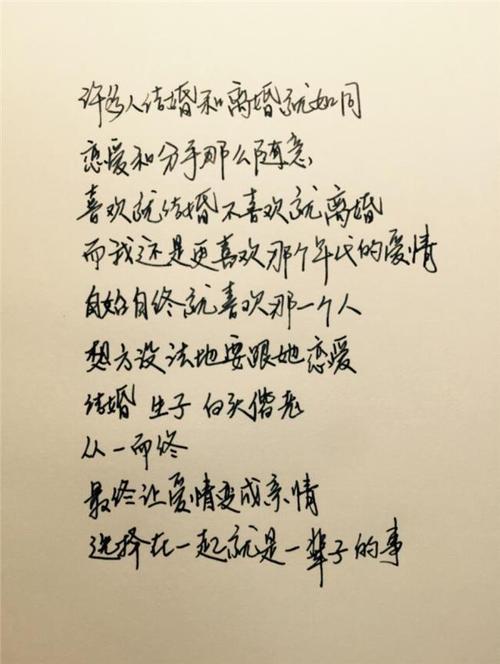 许多人结婚和离婚就如同
恋爱和分手那么随意
喜欢就结婚不喜欢就离婚
而我还是更喜欢那个年代的爱情
自始自终就喜欢那一个人
想方设法地要跟她恋爱
结婚 生子 白头偕老
从一而终
最终让爱情变成亲情
选择在一起就是一辈子的事